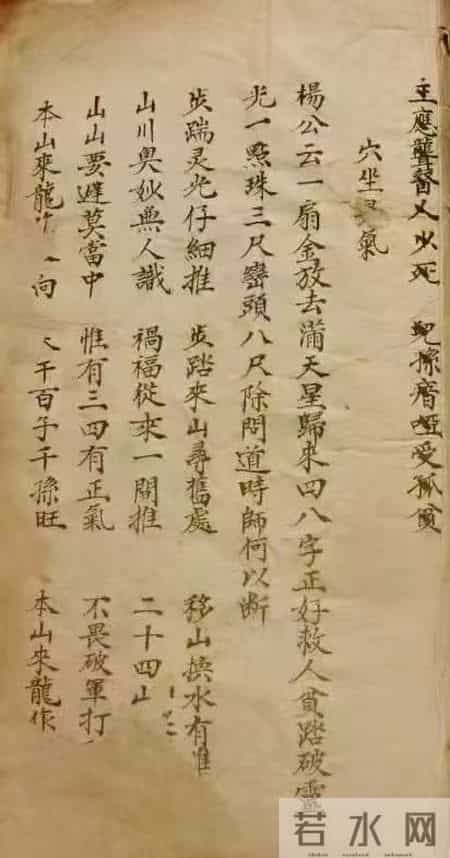 主應聾 死 兒孫瘖啞受孤貧
穴坐 氣
楊公云一扇金放去滿天星歸來四八字正好救人貧踏破靈
光一點珠三尺巒頭八尺除問道時師何以断
步踹灵光仔細推 步踏來山尋舊處 移山换水有准
山川奥妙無人識 禍福從來一間推 二十四山
山山要避莫當中 惟有三四有正氣 不畏破軍打
本山來龍作 向 千百子千孫旺 本山來龍作
若水网